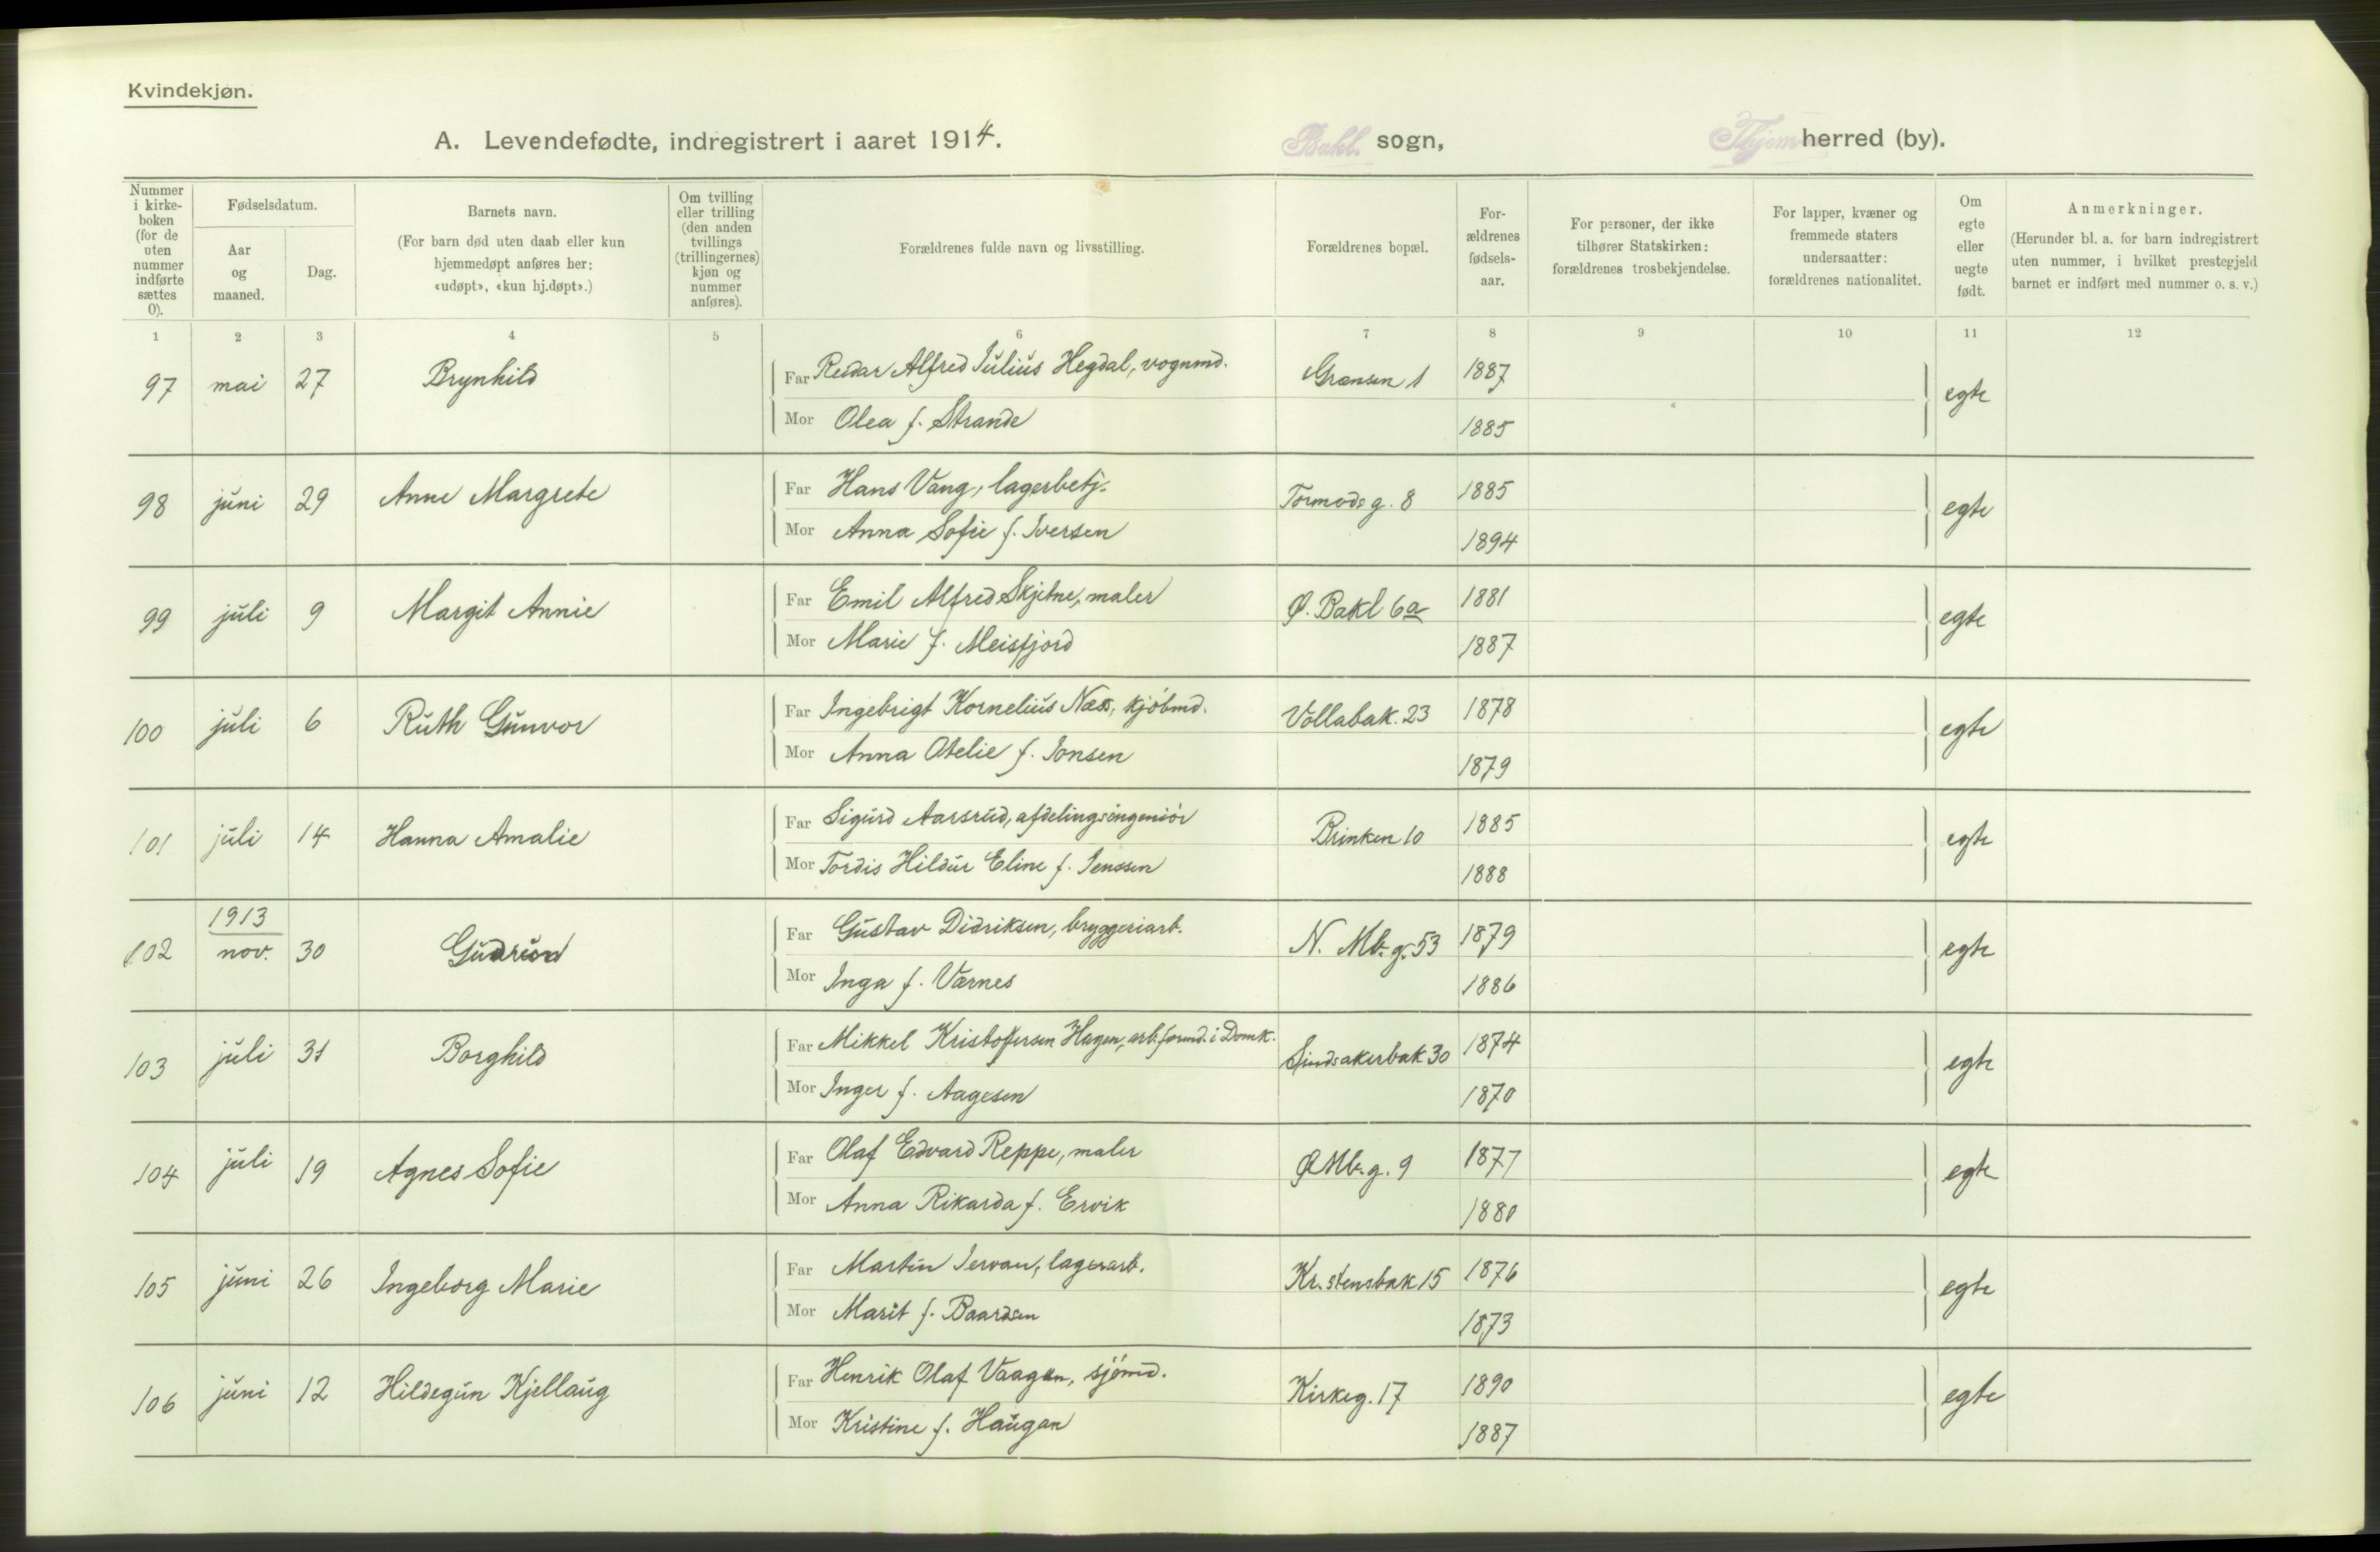 Kvindekjøn.
A. Levendefødte, indregistrert i aaret 1914. Bakl. sogn, Thjem herred (by).
Nummer i kirke-boken (for de uten nummer indførte sættes 0).
Fødselsdatum.
Aar og maaned.
Dag.
Barnets navn.
(For barn død uten daab eller kun hjemmedøpt anføres her: «udøpt», «kun hj.døpt».)
Om tvilling eller trilling (den anden tvillings (trillingernes) kjøn og nummer anføres).
Forældrenes fulde navn og livsstilling.
Forældrenes bopæl.
For-ældrenes fødsels-aar.
For personer, der ikke tilhører Statskirken: forældrenes trosbekjendelse.
For lapper, kvæner og fremmede staters undersaatter: forældrenes nationalitet.
Om egte eller uegte født.
Anmerkninger.
(Herunder bl. a. for barn indregistrert uten nummer, i hvilket prestegjeld barnet er indført med nummer o. s. v.)
1 2 3 4 5 6 7 8 9 10 11 12
97 mai 27 Brynhild Far Reidar Alfred Julius Hegdal, vognmd. Grænsen 1 1887 egte
Mor Olea f. Strande 1885
98 juni 29 Anne Margrete Far Hans Vang, lagerbetj. Tormodsg. 8 1885 egte
Mor Anna Sofie f. Iversen 1894
99 juli 9 Margit Annie Far Emil Alfred Skjetne, maler Ø. Bakl 6a 1881 egte
Mor Marie f. Meisfjord 1887
100 juli 6 Ruth Gunvor Far Ingebrigt Kornelius Næss, kjøbmd. Vollabak. 23 1878 egte
Mor Anna Otelie f. Jonsen 1879
101 juli 14 Hanna Amalie Far Sigurd Aarsrud, afdelingsingeniör Brinken 10 1885 egte
Mor Tordis Hildur Eline f. Jenssen 1888
102 1913 nov. 30 Gudrun Far Gustav Didriksen, bryggeriarb. N. Mb. g. 53 1879 egte
Mor Inga f. Værnes 1886
103 juli 31 Borghild Far Mikkel Kristofersen Hagen, arb.formd. i Domk. Sindsakerbak 30 1874 egte
Mor Inger f. Aagesen 1870
104 juli 19 Agnes Sofie Far Olaf Edvard Reppe, maler Ø Mb. g. 9 1877 egte
Mor Anna Rikarda f. Ervik 1880
105 juni 26 Ingeborg Marie Far Martin Jervan, lagerarb. Kr.stensbak 15 1876 egte
Mor Marit f. Baardsen 1873
106 juni 12 Hildegun Kjellaug Far Henrik Olaf Vaagan, sjömd. Kirkeg. 17 1890 egte
Mor Kristine f. Haugan 1887